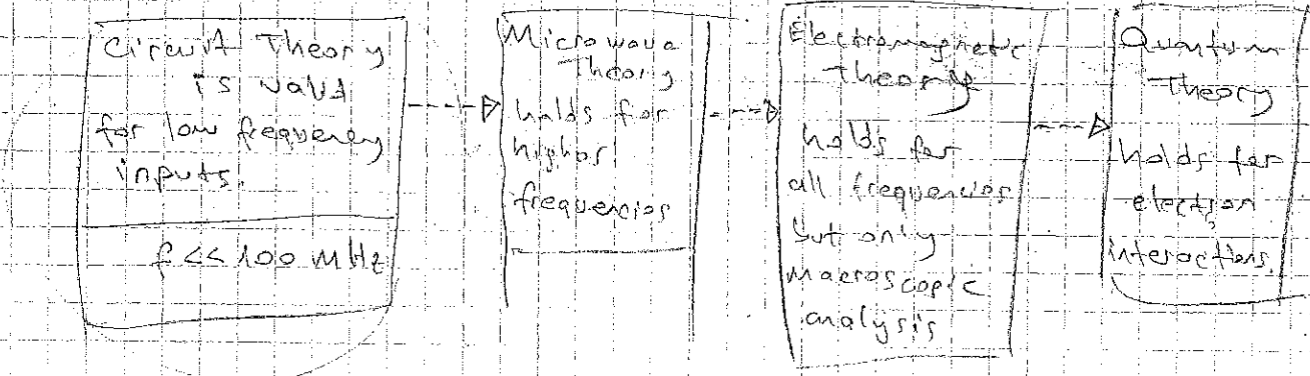 Circuit Theory
is valid
for low frequency
inputs.
f << 100 MHz
Microwave
Theory
holds for
higher
frequencies
Electromagnetic
Theory
holds for
all frequencies
but only
macroscopic
analysis
Quantum
Theory
holds for
electron
interactions.